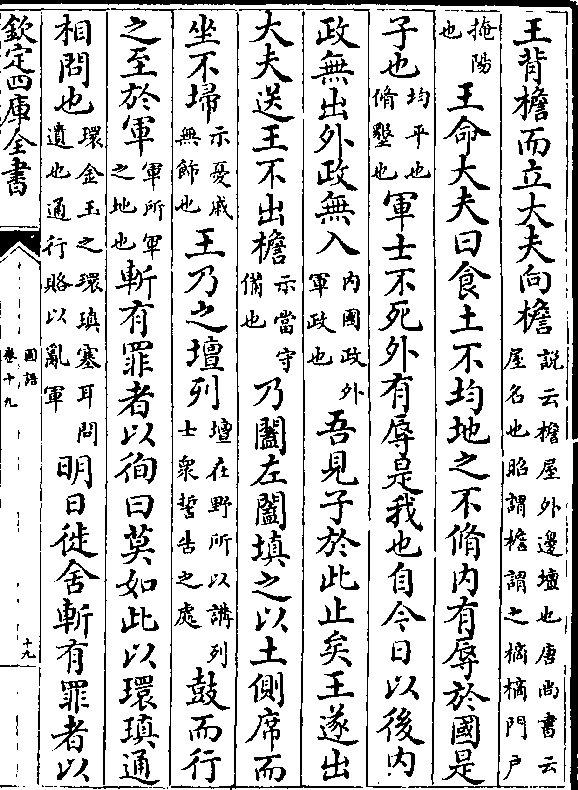 王背檐而立大夫向檐説云檐屋外邊壇也唐尚書云屋名也昭謂檐謂之樀樀門户
掩陽也王命大夫曰食土不均地之不脩内有辱於國是
子也均平也脩墾也軍士不死外有辱是我也自今日以後内
政無出外政無入内國政外軍政也吾見子於此止矣王遂出
大夫送王不出檐示當守備也乃闔左闔填之以土側席而
坐不埽示憂戚無飾也王乃之壇列壇在野所以講列士衆誓告之處鼓而行
之至於軍軍所軍之地也斬有罪者以徇曰莫如此以環瑱通
相問也環金玉之環瑱塞耳問遺也通行賂以亂軍明日徙舍斬有罪者以
欽定四庫全書
國語
卷十九
十九